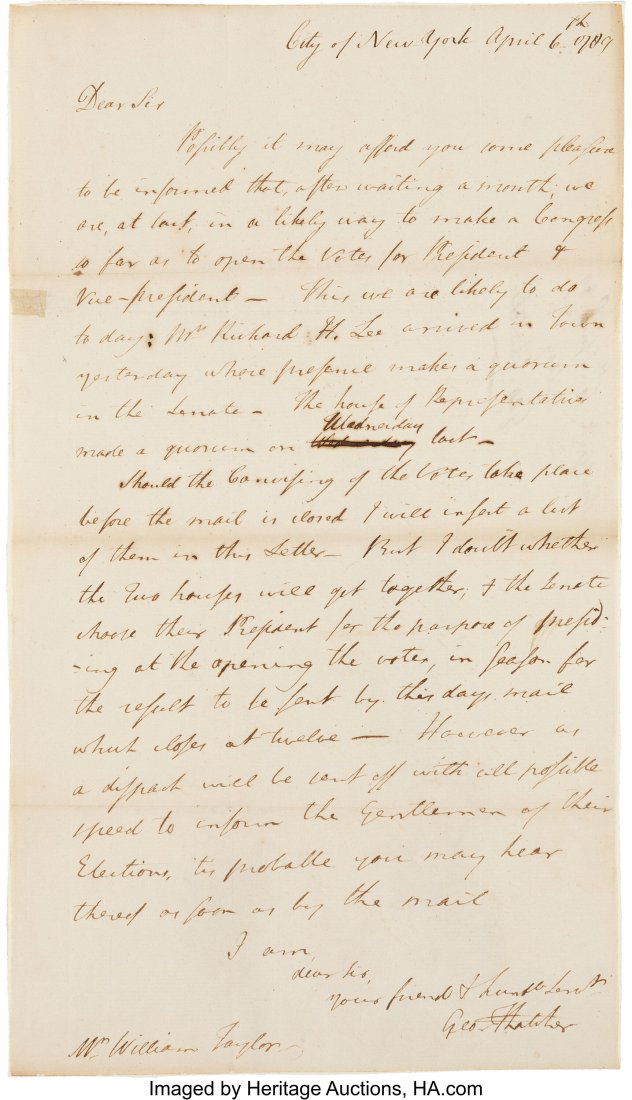 City of New York April 6th 1789
Dear Sir
Possibly it may afford you some pleasure
to be informed that, after waiting a month, we
are, at last, in a likely way to make a Congress
so far as to open the Votes for President &
Vice-president – This we are likely to do
to day: Mr Richard H. Lee arrived in Town
yesterday whose presence makes a quorum
in the Senate – The house of Representatives
made a quorum on Wednesday last –
Should the Canvising of the Votes take place
before the mail is closed I will insert a list
of them in this Letter – But I doubt whether
the Two houses will get together, & the Senate
choose their President for the purpose of presid-
-ing at the opening the votes, in season for
the result to be sent by this days mail
which closes at twelve – However as
a dispach will be sent off with all possible
speed to inform the Gentlemen of their
Elections, tis probable you may hear
thereof as soon as by the mail
I am,
dear Sir,
your friend & humble Servt
Geo. Thatcher
Mr William Taylor
Imaged by Heritage Auctions, HA.com